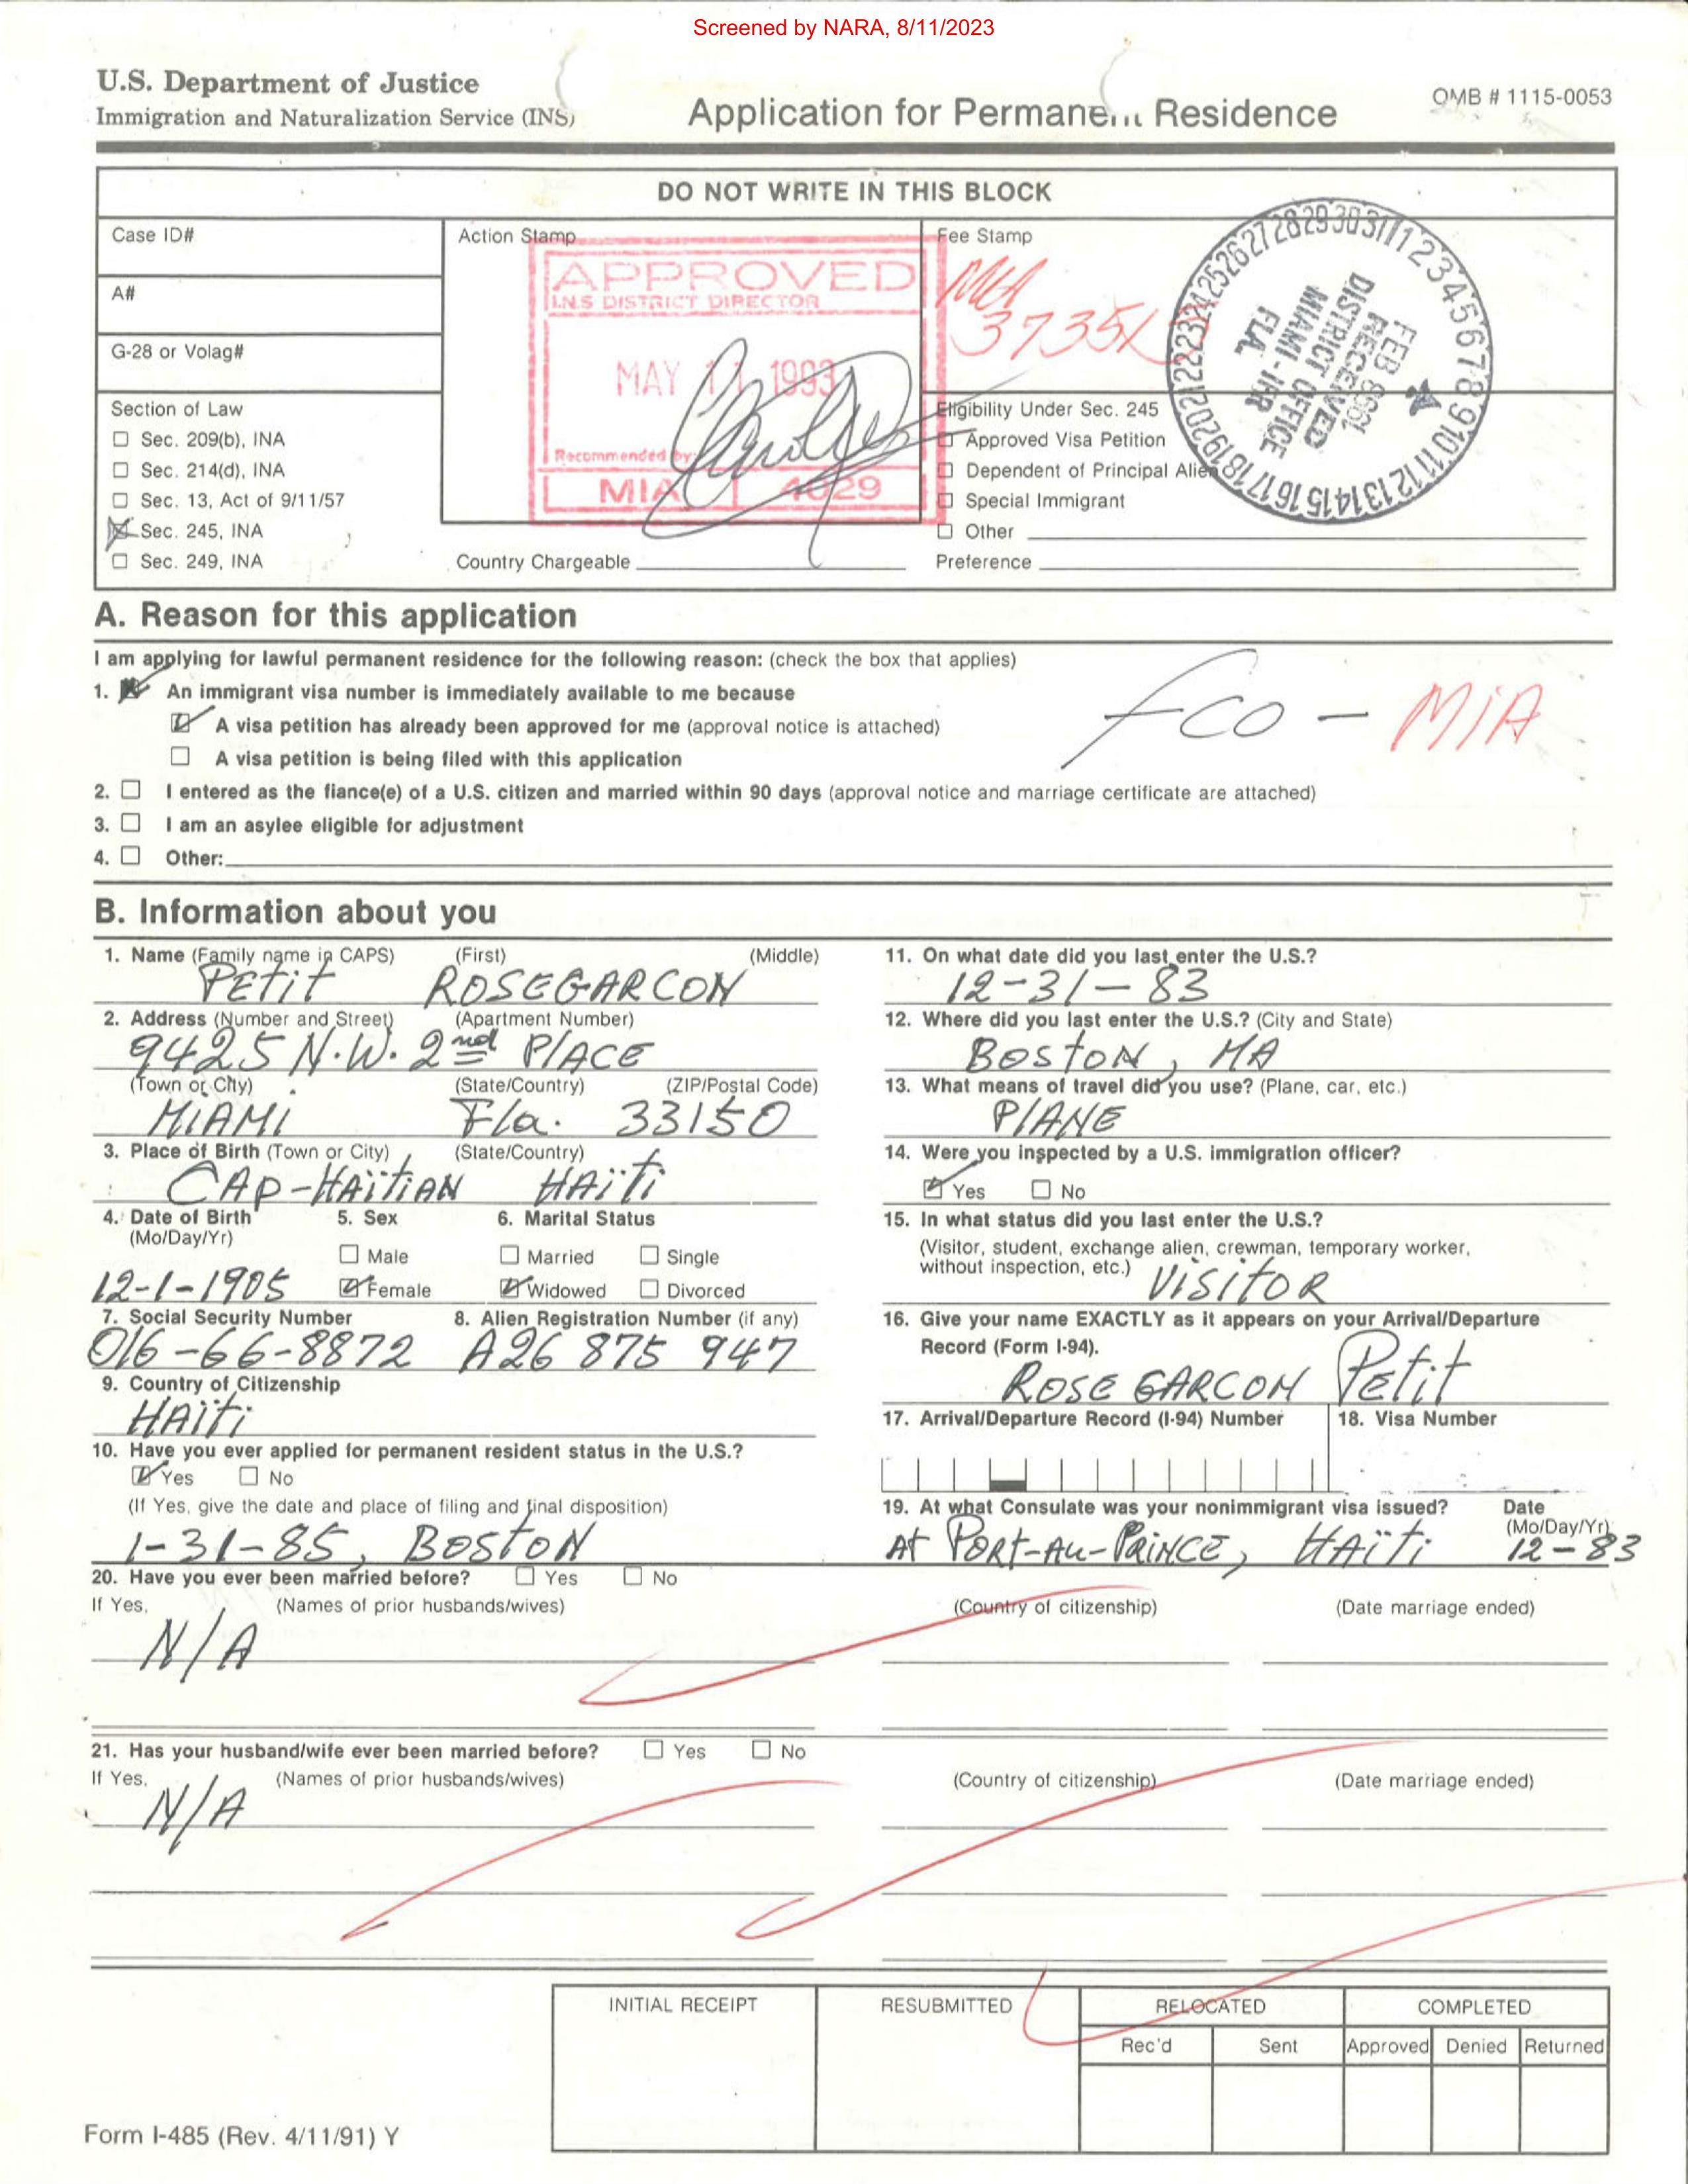 Screened by NARA, 8/11/2023
U.S. Department of Justice
Immigration and Naturalization Service (INS)
Application for Permanent Residence
OMB # 1115-0053
DO NOT WRITE IN THIS BLOCK
Case ID#
A#
G-28 or Volag#
Section of Law
Sec. 209(b), INA
Sec. 214(d), INA
Sec. 13, Act of 9/11/57
Sec. 245, INA
Sec. 249, INA
Action Stamp
APPROVED
I.N.S DISTRICT DIRECTOR
MAY 11 1993
Recommended by:
MIA 4029
Country Chargeable
Fee Stamp
MIA
RECEIVED
DISTRICT OFFICE
MIAMI - IFR
FLA.
Eligibility Under Sec. 245
Approved Visa Petition
Dependent of Principal Alien
Special Immigrant
Other
Preference
A. Reason for this application
I am applying for lawful permanent residence for the following reason: (check the box that applies)
1. An immigrant visa number is immediately available to me because
A visa petition has already been approved for me (approval notice is attached)
A visa petition is being filed with this application
FCO - MIA
2. I entered as the fiance(e) of a U.S. citizen and married within 90 days (approval notice and marriage certificate are attached)
3. I am an asylee eligible for adjustment
4. Other:
B. Information about you
1. Name (Family name in CAPS) (First) (Middle)
PETiT ROSEGARCON
2. Address (Number and Street) (Apartment Number)
9425 N.W. 2nd PlACE
(Town or City) (State/Country) (ZIP/Postal Code)
MiAMi Fla. 33150
3. Place of Birth (Town or City) (State/Country)
CAP-HAïTiAN HAïTi
4. Date of Birth 5. Sex 6. Marital Status
(Mo/Day/Yr)
Male Married Single
12-1-1905 Female Widowed Divorced
7. Social Security Number 8. Alien Registration Number (if any)
016-66-8872 A26 875 947
9. Country of Citizenship
HAïTi
10. Have you ever applied for permanent resident status in the U.S.?
Yes No
(If Yes, give the date and place of filing and final disposition)
1-31-85, BOSTON
11. On what date did you last enter the U.S.?
12-31-83
12. Where did you last enter the U.S.? (City and State)
BOSTON, MA
13. What means of travel did you use? (Plane, car, etc.)
PlANE
14. Were you inspected by a U.S. immigration officer?
Yes No
15. In what status did you last enter the U.S.?
(Visitor, student, exchange alien, crewman, temporary worker,
without inspection, etc.) VISITOR
16. Give your name EXACTLY as it appears on your Arrival/Departure
Record (Form I-94).
ROSE GARCON PETiT
17. Arrival/Departure Record (I-94) Number 18. Visa Number
19. At what Consulate was your nonimmigrant visa issued? Date
(Mo/Day/Yr)
AT PORT-AU-PRiNCE, HAïTi 12-83
20. Have you ever been married before? Yes No
If Yes, (Names of prior husbands/wives) (Country of citizenship) (Date marriage ended)
N/A
21. Has your husband/wife ever been married before? Yes No
If Yes, (Names of prior husbands/wives) (Country of citizenship) (Date marriage ended)
N/A
INITIAL RECEIPT RESUBMITTED RELOCATED COMPLETED
Rec'd Sent Approved Denied Returned
Form I-485 (Rev. 4/11/91) Y